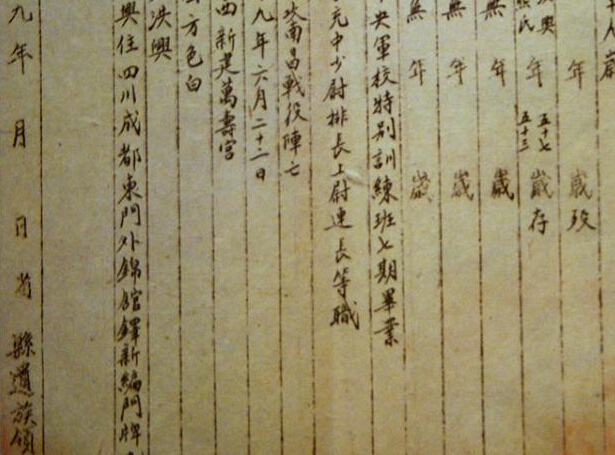 年 歲 歿
興 氏 年 五十七 五十三 歲 存
無 年 歲
無 年 歲
無 年 歲
央軍校特別訓練班七期畢業
充中少尉排長上尉連長等職
南昌戰役陣亡
九年六月二十二日
西新建萬壽宮
方色白
洪興
興住四川成都東門外錦官驛新編門牌
九年 月 日 省 縣遺族領